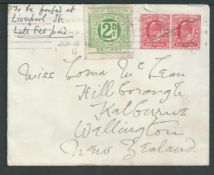 To be posted at
Liverpool St.
Late Fee paid
JUN 16
GREAT EASTERN
2D
RAILWAY
Miss Lorna McLean
Hillborough
Kelburne
Wellington
New Zealand.